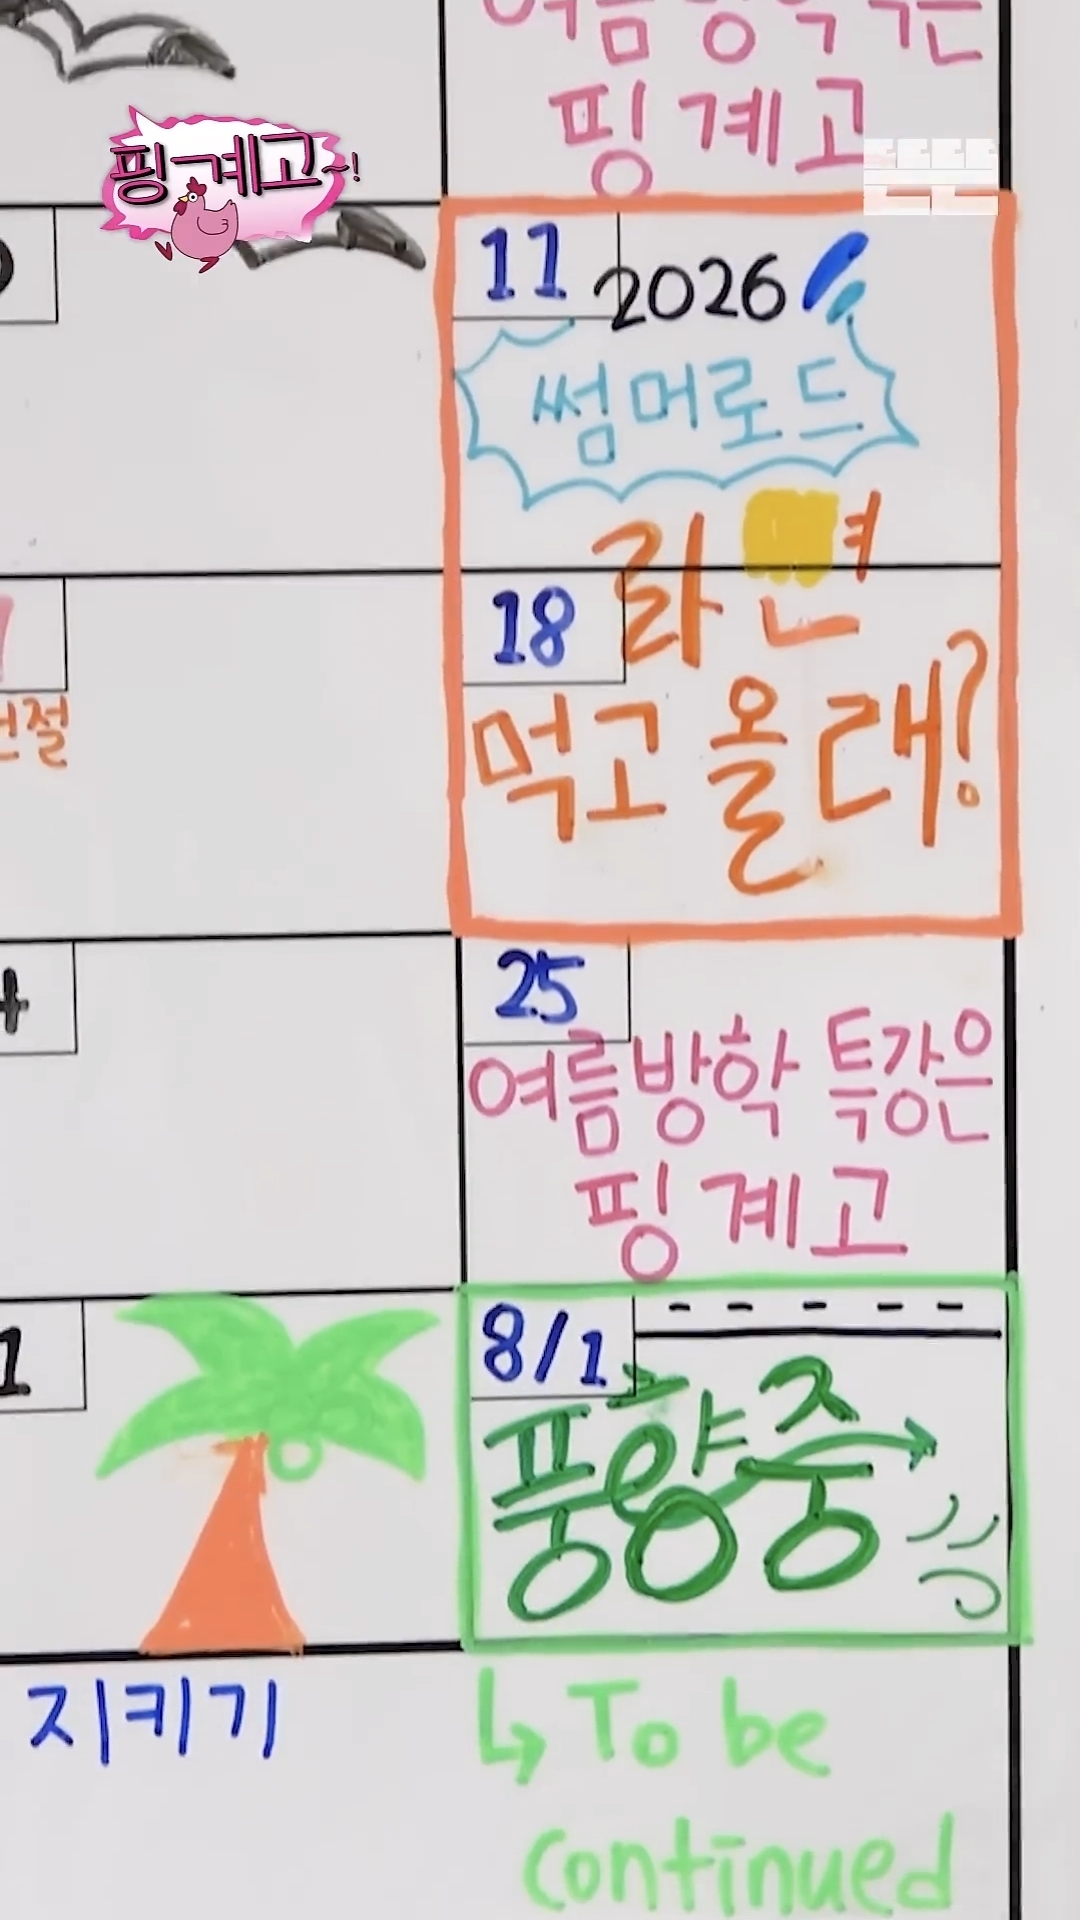 여름방학 특강은
핑계고
핑계고~!
뜬뜬
11
2026
썸머로드
라면
18
먹고 올래?
절
25
여름방학 특강은
핑계고
1
8/1
풍향중
지키기
↳ To be
continued